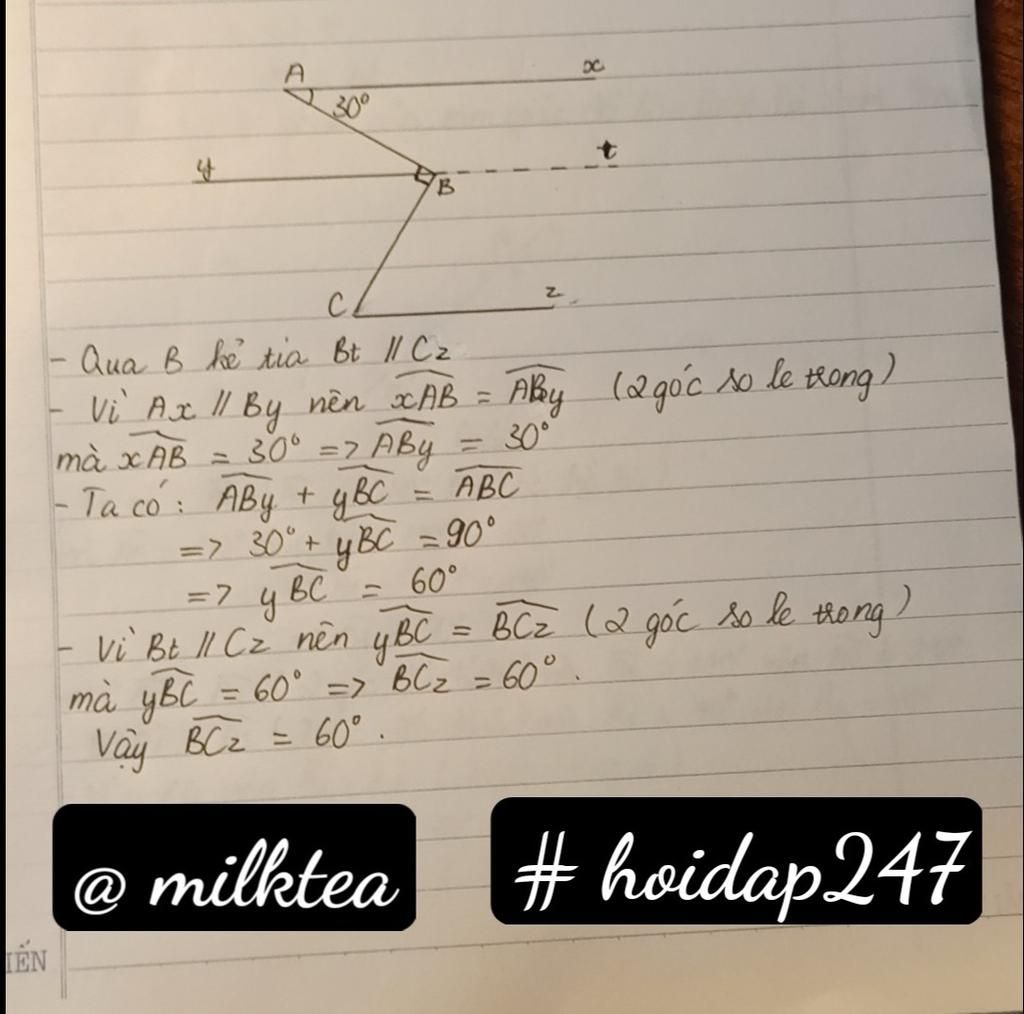 A x
30°
y t
B
C z
- Qua B kẻ tia Bt // Cz
- Vì Ax // By nên xAB = ABy (2 góc so le trong)
mà xAB = 30° => ABy = 30°
- Ta có: ABy + yBC = ABC
=> 30° + yBC = 90°
=> yBC = 60°
- Vì Bt // Cz nên yBC = BCz (2 góc so le trong)
mà yBC = 60° => BCz = 60°.
Vậy BCz = 60°.
@ milktea # hoidap247
IẾN